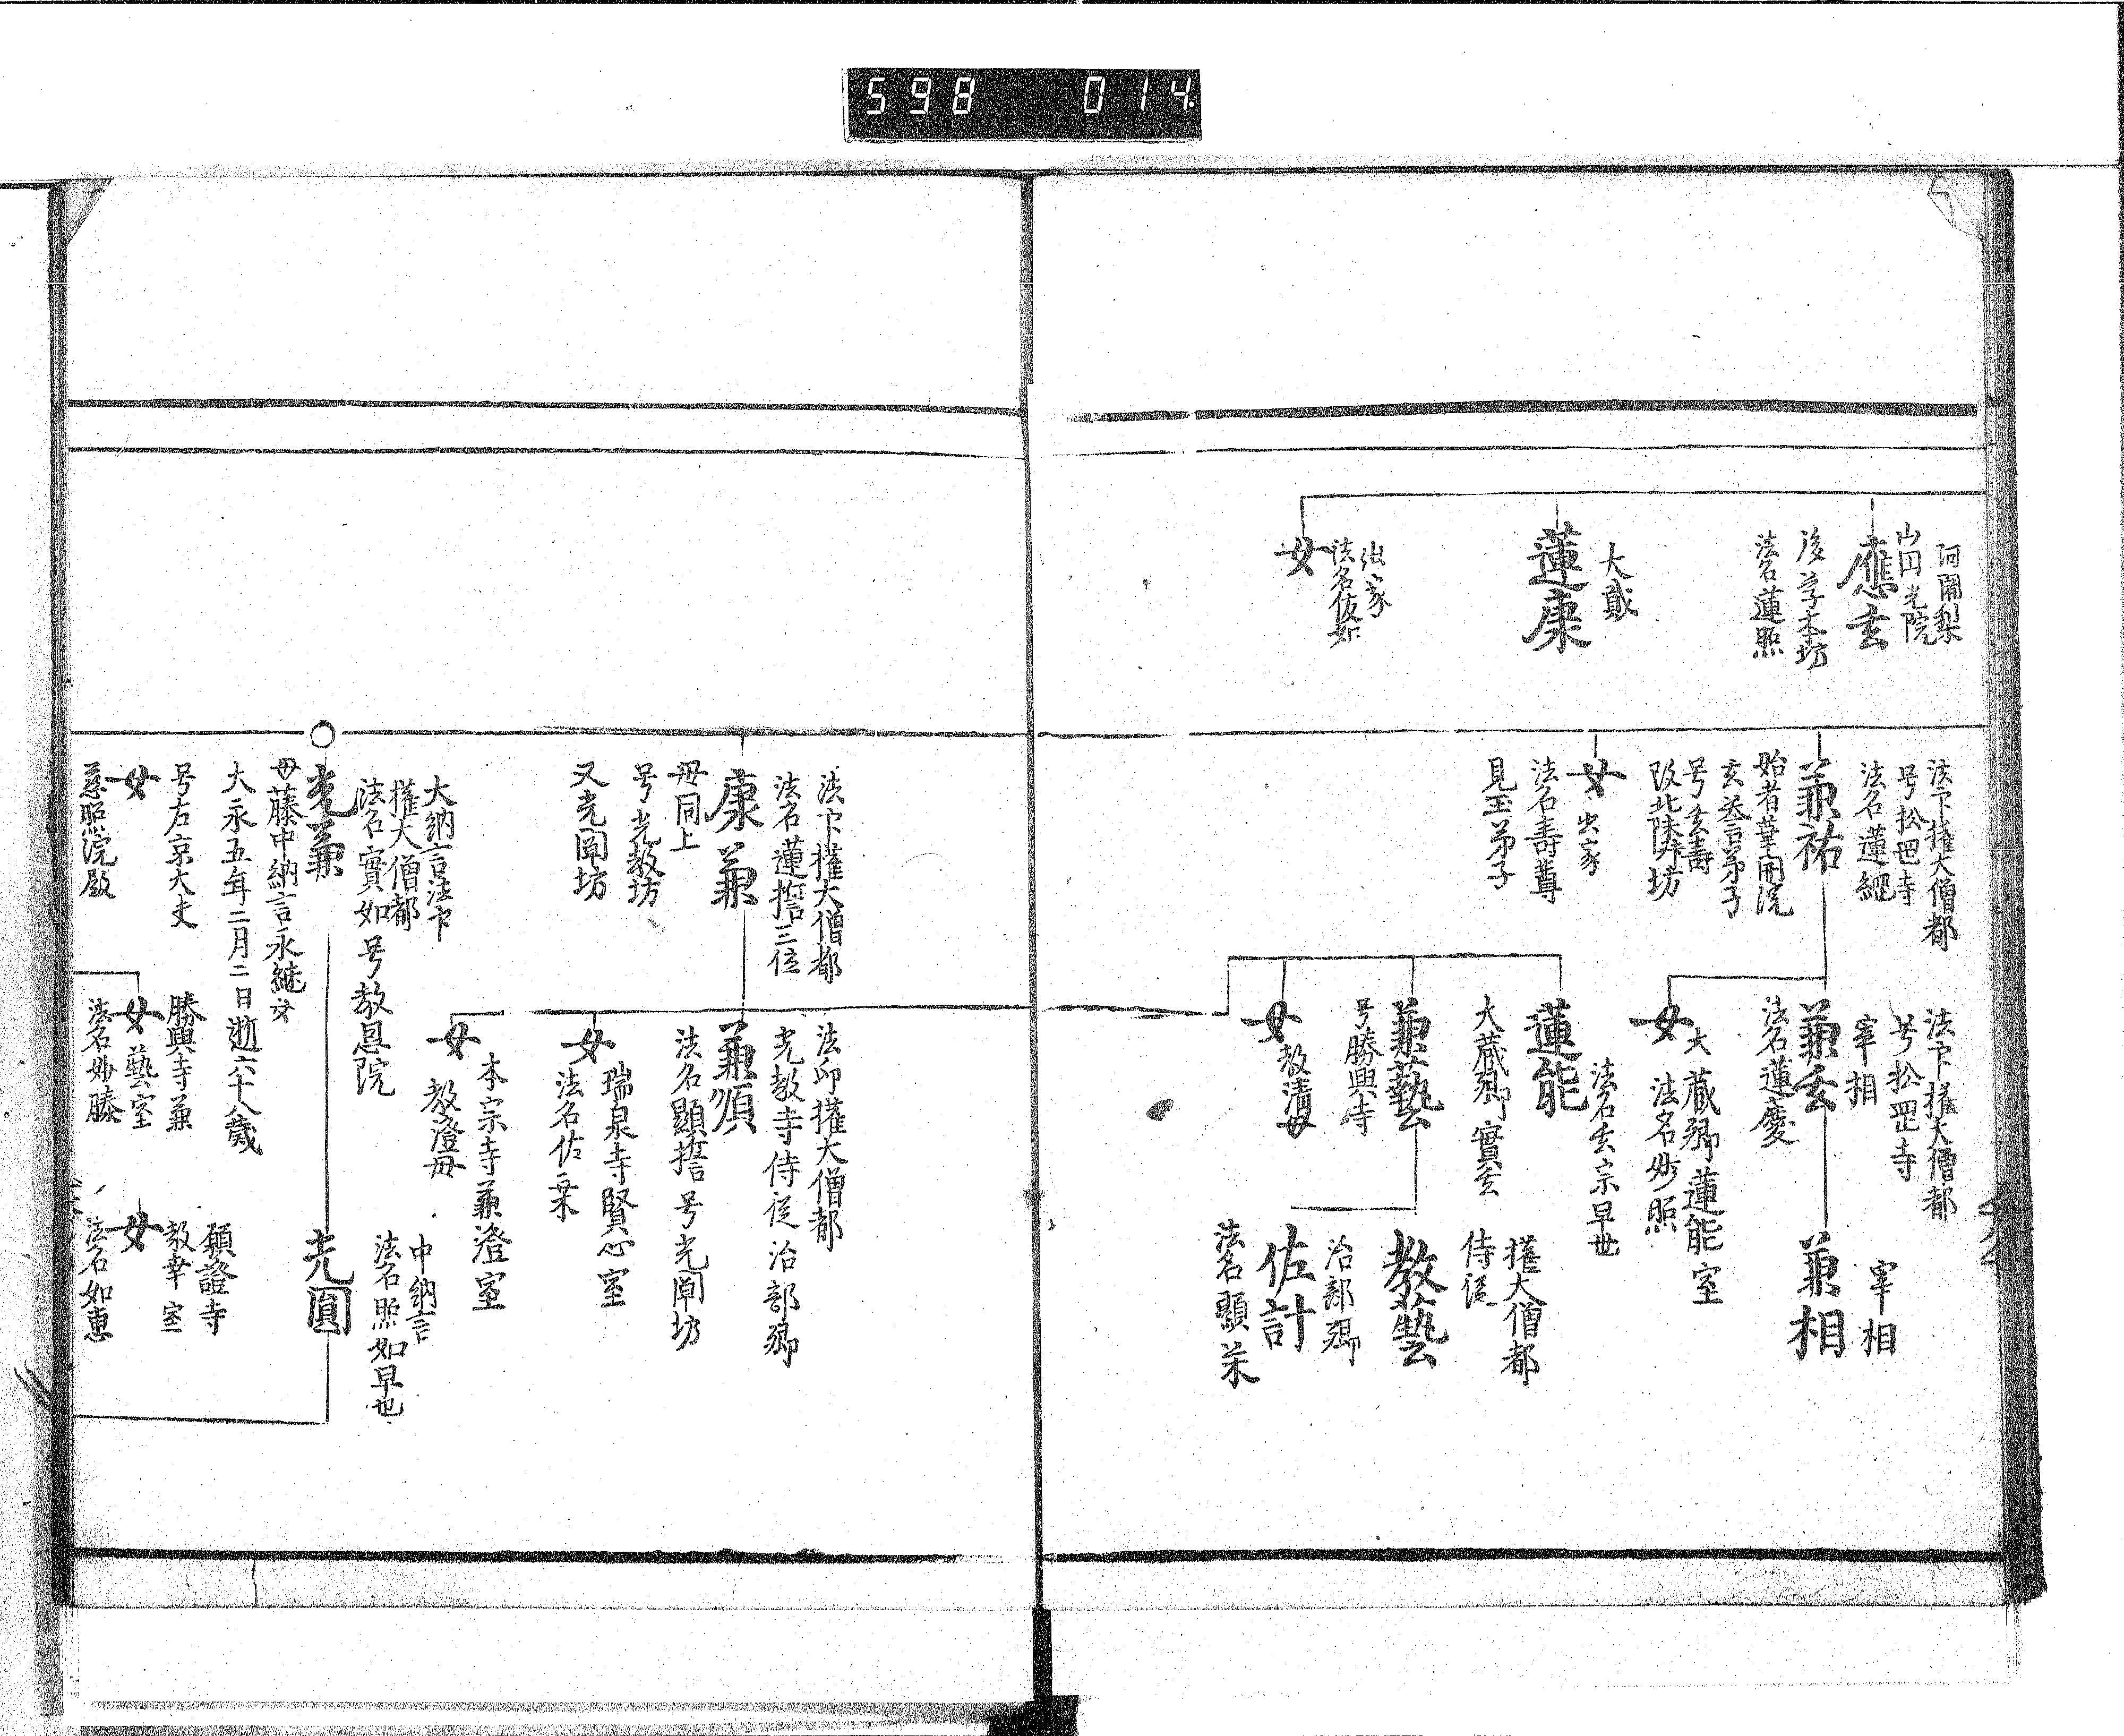 598 014
阿闍梨
山門光院
應玄
後号本坊
法名蓮照
大貳
蓮康
出家
女
法名俊如
法下權大僧都
号松罡寺
法名蓮綱
兼祐
始者華開院
玄叅言弟子
号玄壽
改北隣坊
女 出家
法名壽尊
見玉弟子
法下權大僧都
号松罡寺
宰相
兼玄
法名蓮慶
大藏卿蓮能室
女
法名妙照
法名玄宗早世
蓮能
大藏卿 實玄
兼藝
号勝興寺
女
教清母
宰相
兼相
權大僧都
侍従
教藝
治部卿
佐計
法名顯榮
法下權大僧都
法名蓮誓三位
康兼
母同上
号光教坊
又光闡坊
法印權大僧都
光教寺侍従 治部卿
兼順
法名顯誓 号光闡坊
瑞泉寺賢心室
女
法名佐栗
本宗寺兼澄室
女
教澄母
大納言法下
權大僧都
法名實如 号教恩院
光兼
母藤中納言永継女
大永五年二月二日逝六十八歲
中納言
法名照如早世
光圓
号右京大夫
女
慈照院殿
勝興寺兼
藝室
女
法名妙勝
願證寺
教幸室
女
法名如恵